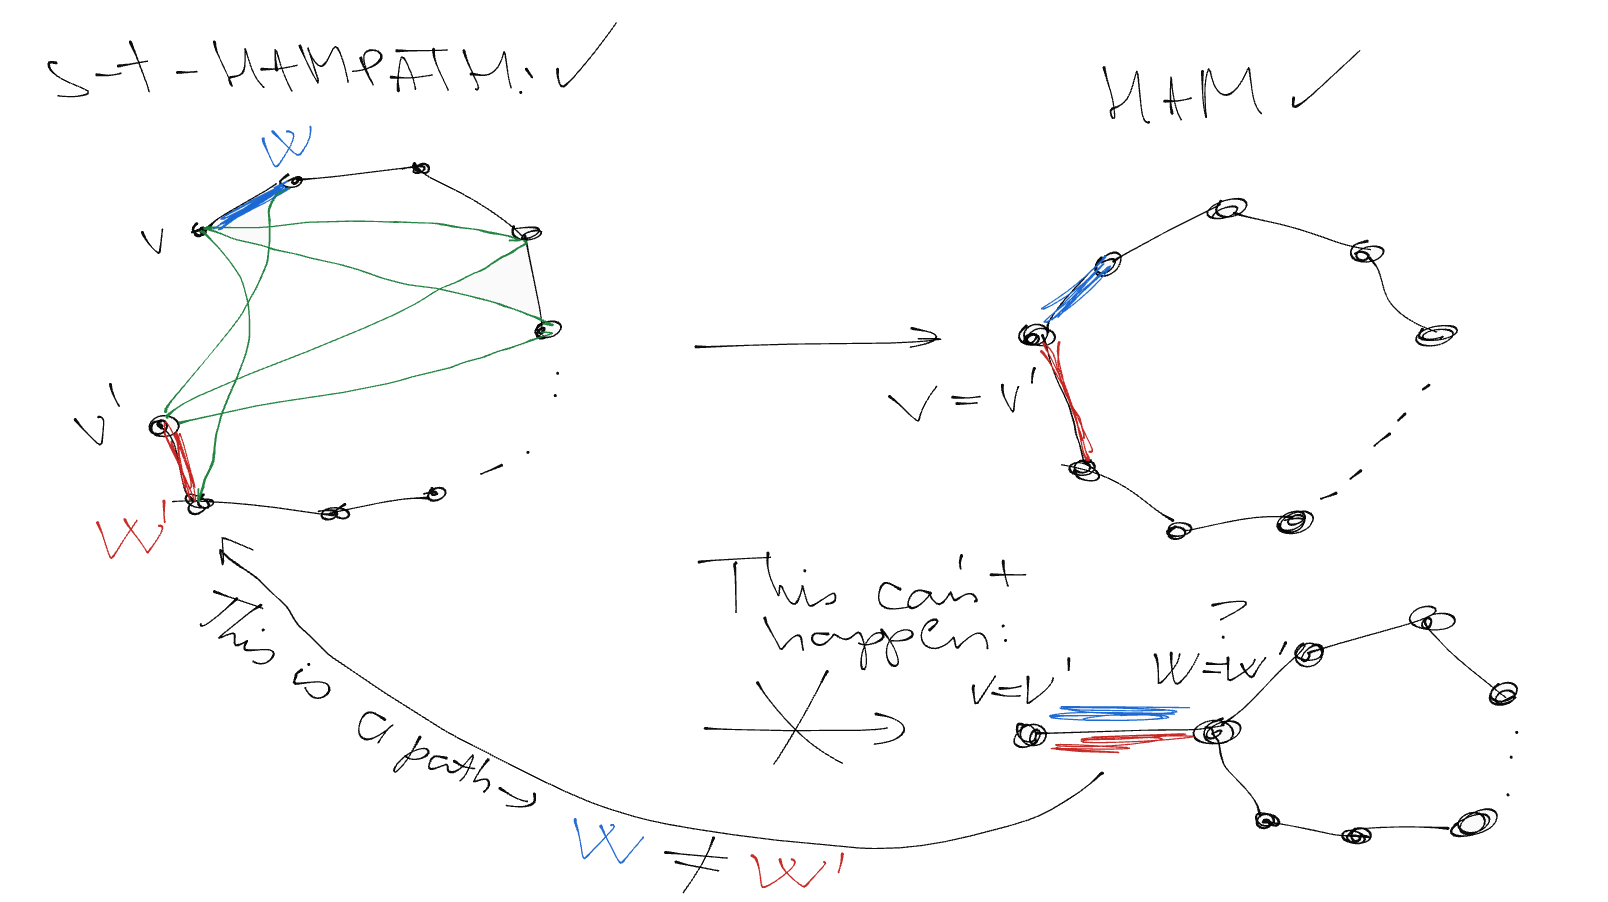 s-t-HAMPATH: ✓
HAM ✓
w
v
v'
w'
v = v'
This can't
happen:
?
v=v'
w=w'
This is
a path →
w ≠ w'